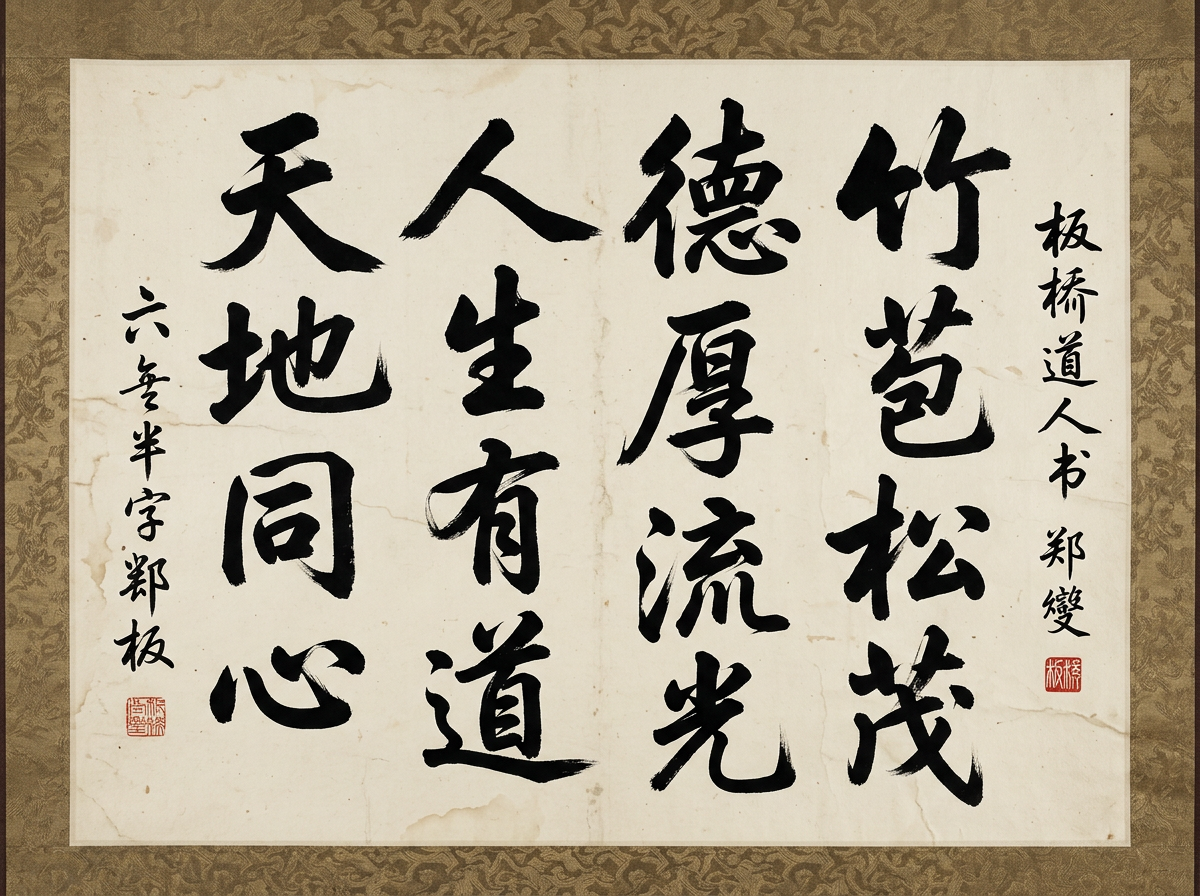 板桥道人书 郑燮
板橋
竹苞松茂
德厚流光
人生有道
天地同心
六半字鄭板